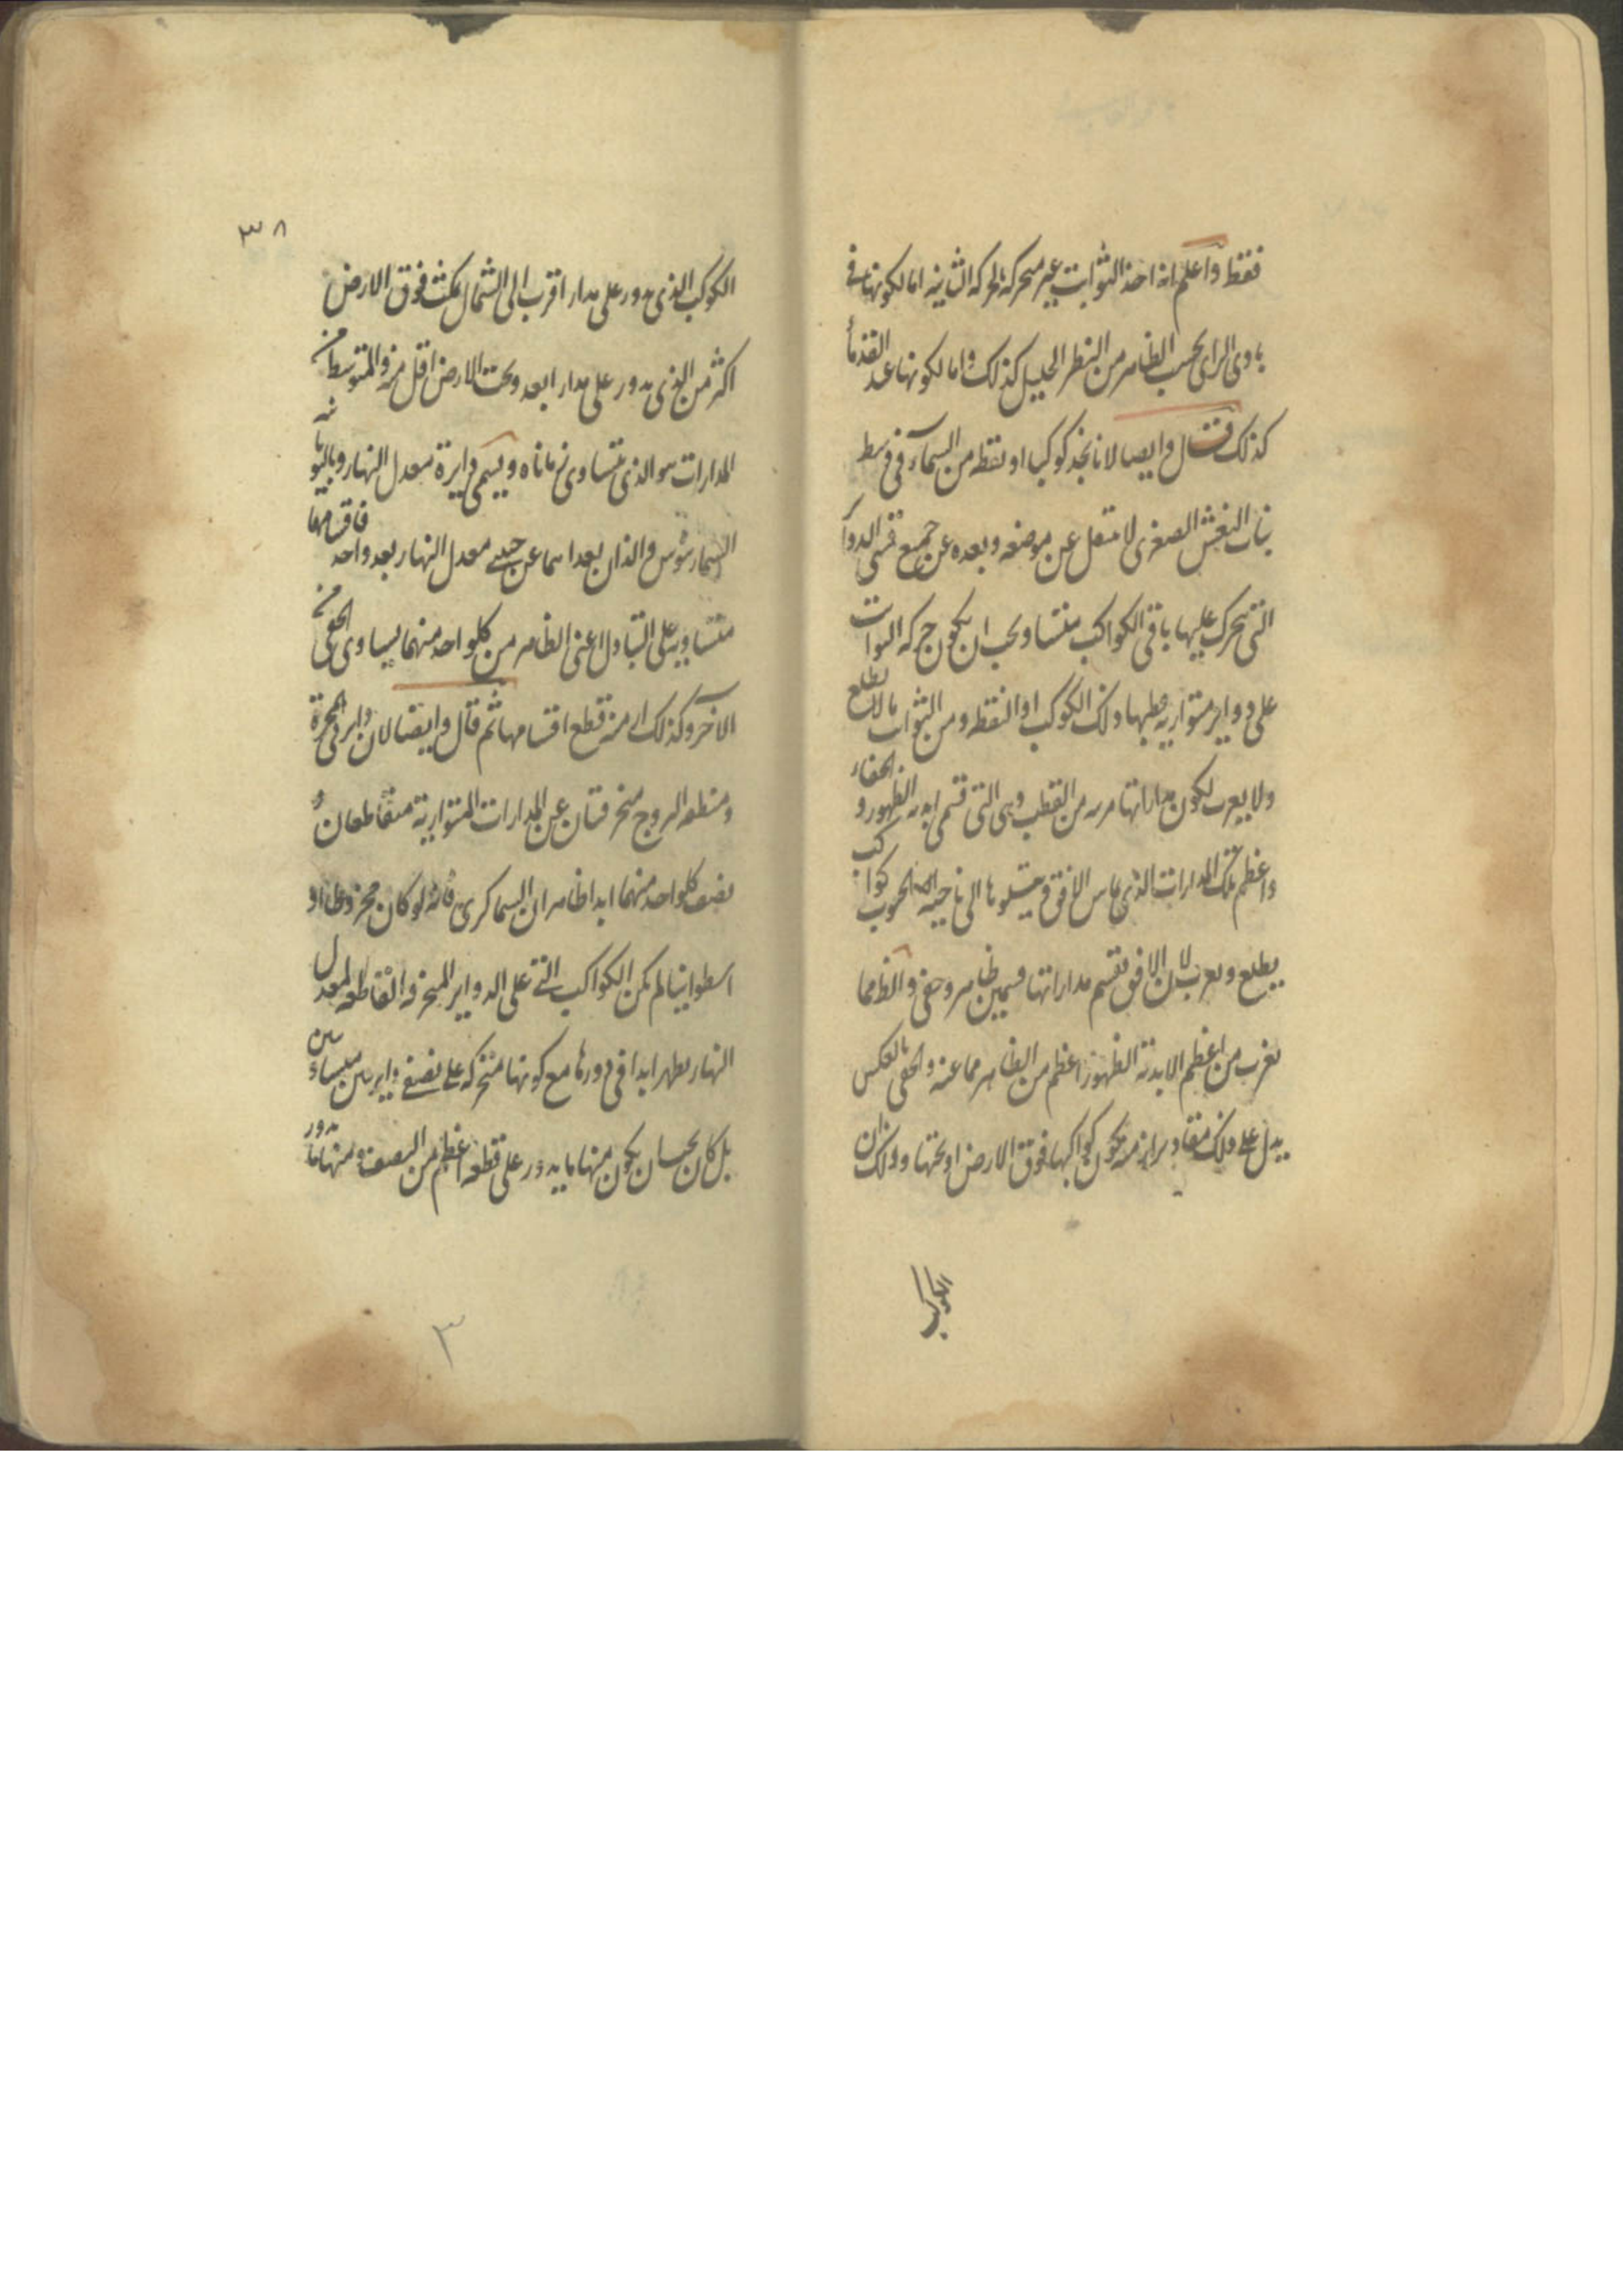 فقط واعلم انه اخذ الثوابت غير متحركة بالحركة الثانية اما لكونها في
بادى الراى بحسب الظاهر من النظر الجليل كذلك واما لكونها عند القدماء
كذلك قال وايضا لانا نجد كوكبا او نقطه من السماء في وسط
بنات النعش الصغرى لا ينتقل عن موضعه وبعده عن جميع قسى الدوائر
التى يتحرك عليها باقى الكواكب متساو يجب ان يكون حركة الثوابت
على دواير متوازية قطبها ذلك الكوكب او النقطه ومن الثوابت ما لا يطلع
ولا يغرب لكون مداراتها قريبة من القطب وهى التى تسمى ابدية الظهور والخفاء
واعظم تلك المدارات الذى يماس الافق ويتلوها الى ناحية الجنوب كواكب
يطلع ويغرب لان الافق يقسم مداراتها قسمين ظاهر وخفى والظاهر مما
يقرب من اعظم الابدية الظهور اعظم من الظاهر مما عنه والخفى بالعكس
يدل على ذلك مقادير ازمنة كون كواكبها فوق الارض او تحتها وذلك ان
الكوكب
٣٨
الكوكب الذى يدور على مدار اقرب الى الشمال يمكث فوق الارض
اكثر من الذى يدور على مدار ابعد وتحت الارض اقل منه والمتوسط من
المدارات هو الذى يتساوى زماناه ويسمى دايرة معدل النهار وباليونانية
والذان بعداهما عن جنبتى معدل النهار بعد واحد فاقسامهما
متساوية على التبادل اعنى الظاهر من كل واحد منهما يساوى الخفى من
الآخر وكذلك ازمنة قطع اقسامها ثم قال وايضا لان دايرتى المجرة
ومنطقه البروج منحرفتان عن المدارات المتوازية متقاطعان و
نصف كل واحد منهما ابدا ظاهر ان السما كرى فانه لو كان مخروطا او
اسطوانيا لم يكن الكواكب التى على الدواير المنحرفة القاطعه لمعدل
النهار يظهر ابدا فى دورها مع كونها متحركه على نصفى دايرتين متساويين
بل كان يجب ان يكون منها ما يدور على قطعه اعظم من النصف ومنها ما يدور
٣